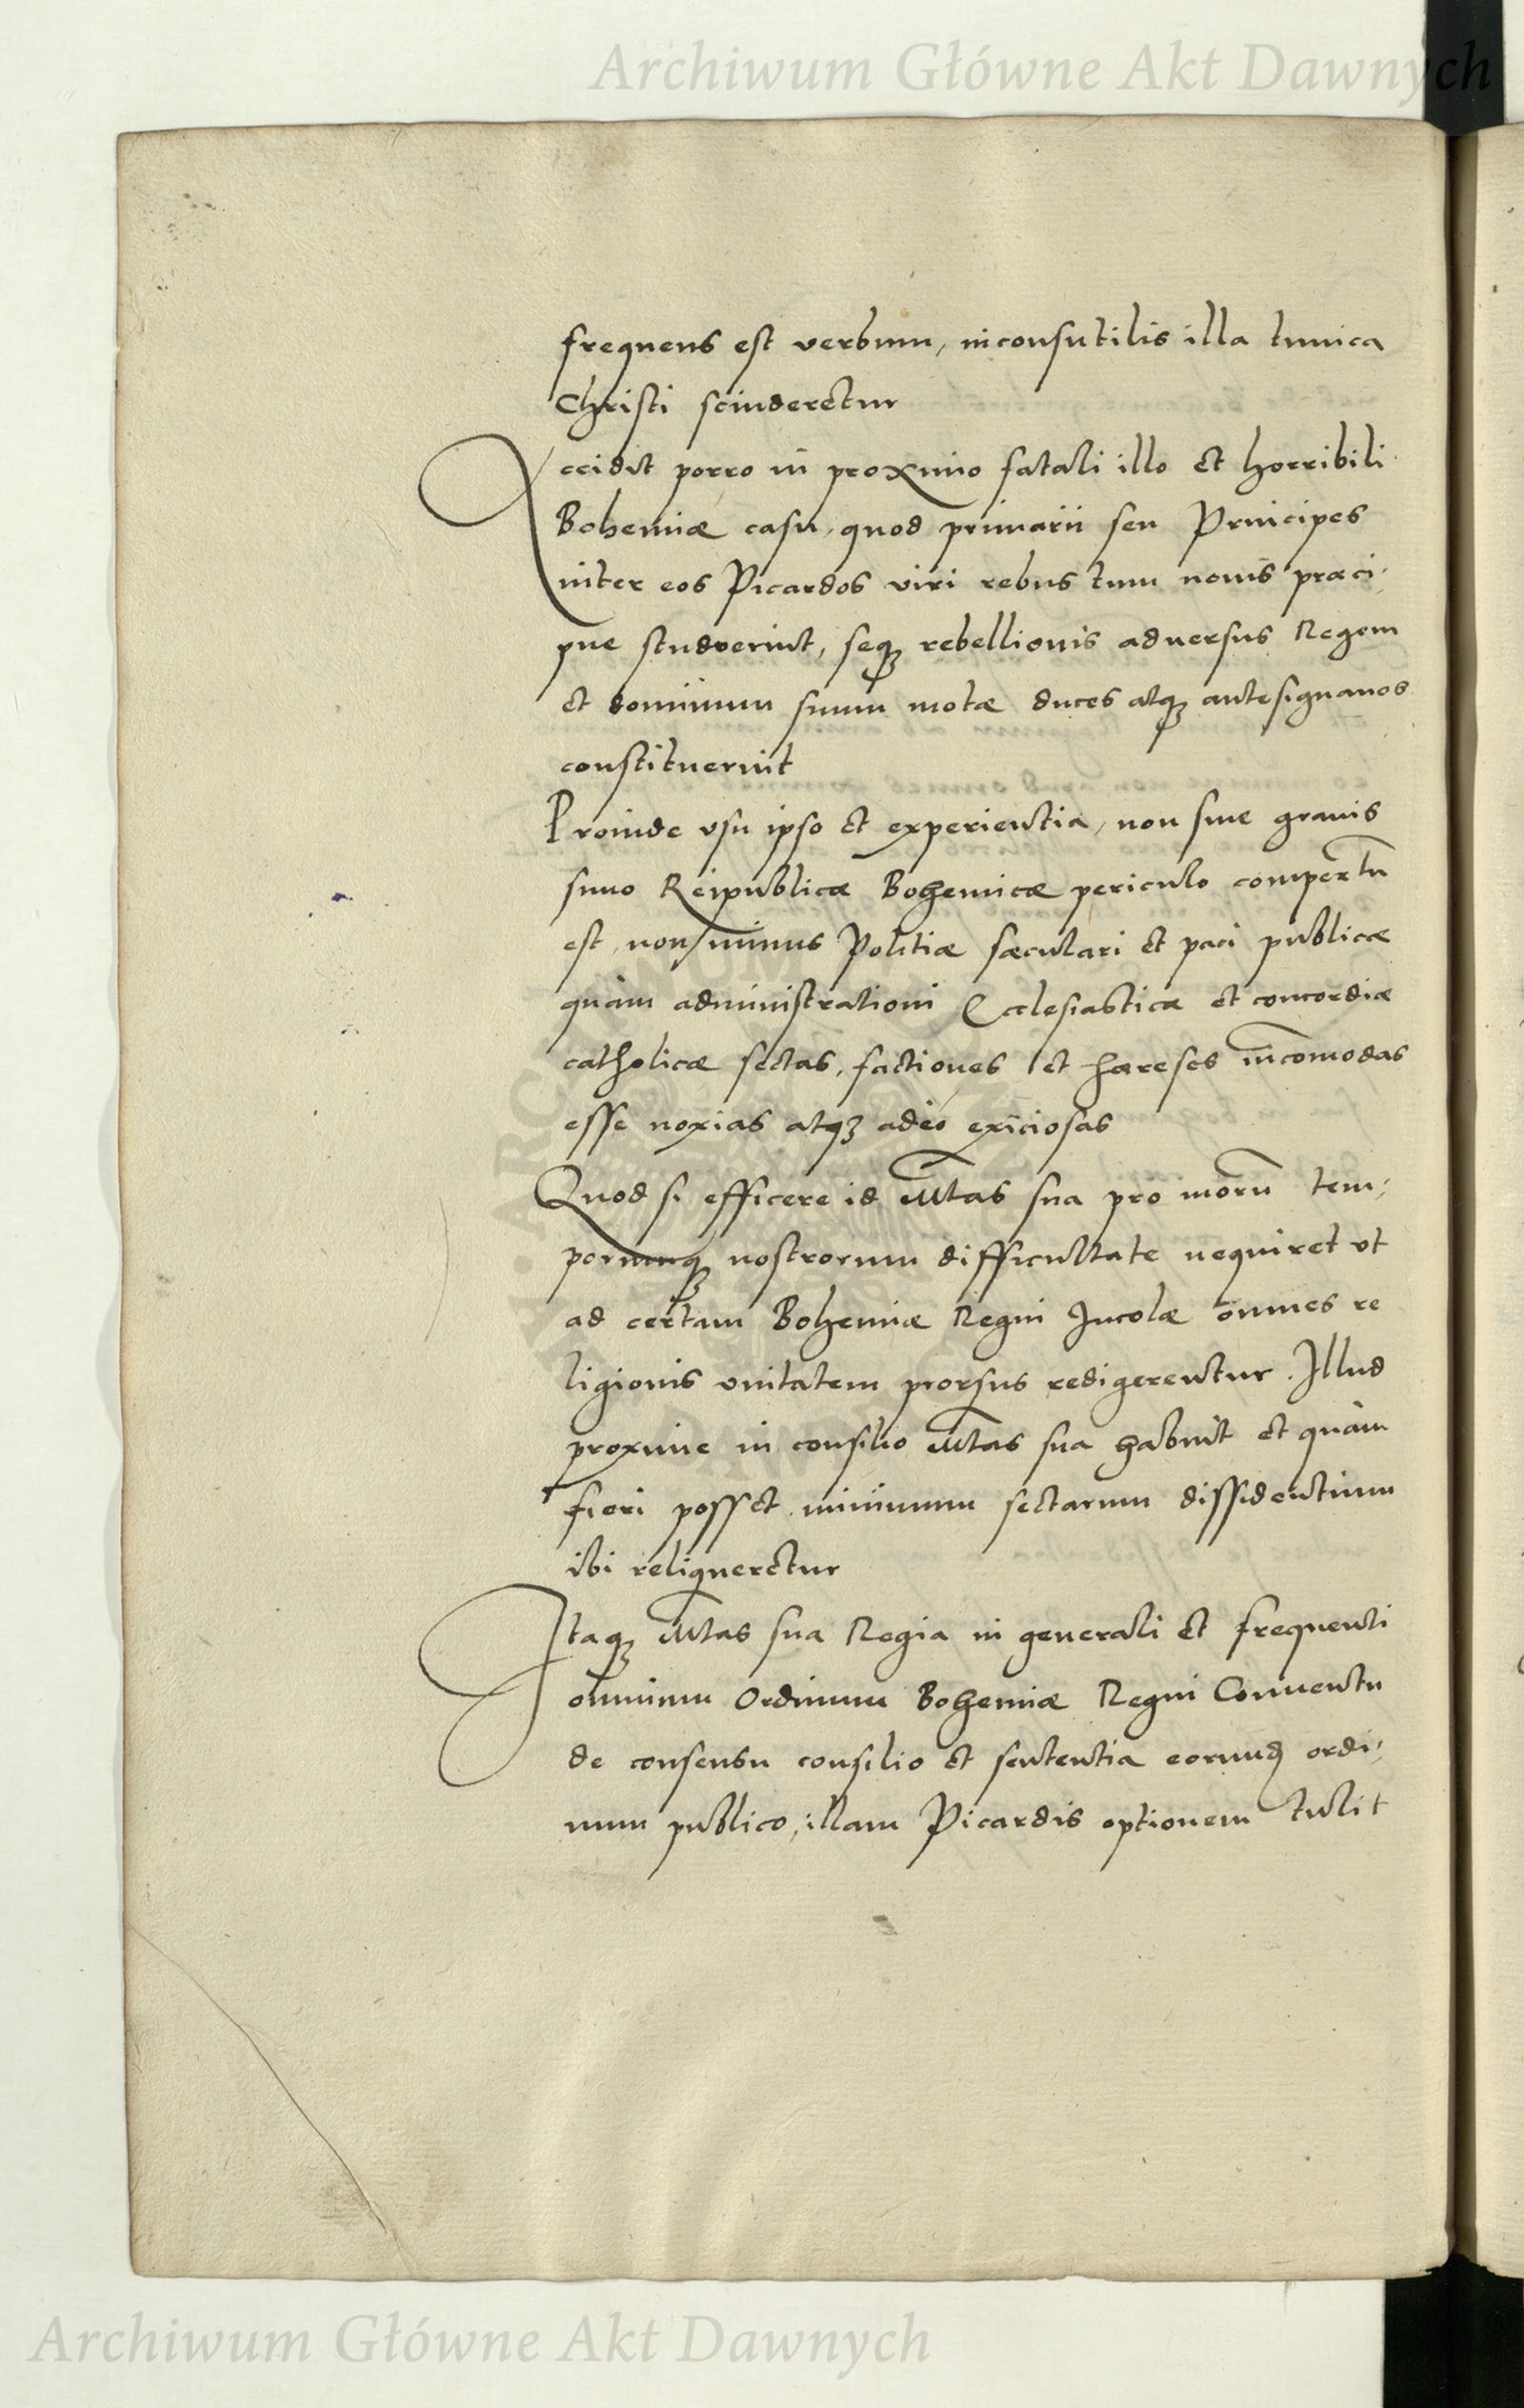 Archiwum Główne Akt Dawnych
frequens est verbum, inconsutilis illa tunica
Christi scinderetur
Accidit porro in proximo fatali illo et horribili
Bohemiæ casu, quod primarii seu Principes
inter eos Picardos viri rebus tum nouis præci,
pue studuerint, seq₃ rebellionis aduersus Regem
et dominum suum motæ duces atq₃ antesignanos
constituerint
Proinde vsu ipso et experientia, non sine grauis
simo Reipublicæ Bohemicæ periculo compertũ
est, non minus Politiæ sæculari et paci publicæ
quàm administrationi Ecclesiasticæ et concordiæ
catholicæ sectas, factiones et hæreses incom̃odas
esse noxias atq₃ adeò exiciosas
Quod si efficere id Mtas sua pro morũ tem,
porumq₃ nostrorum difficultate nequiret vt
ad certam Bohemiæ Regni Incolæ omnes re
ligionis vnitatem prorsus redigerentur. Illud
proxime in consilio Mtas sua habuit et quàm
fieri posset minimum sectarum dissidentium
ibi relinqueretur
Itaq₃ Mtas sua Regia in generali et frequenti
omnium Ordinum Bohemiæ Regni Conuentu
de consensu consilio et sententia eorumd ordi,
num publico, illam Picardis optionem tulit
Archiwum Główne Akt Dawnych